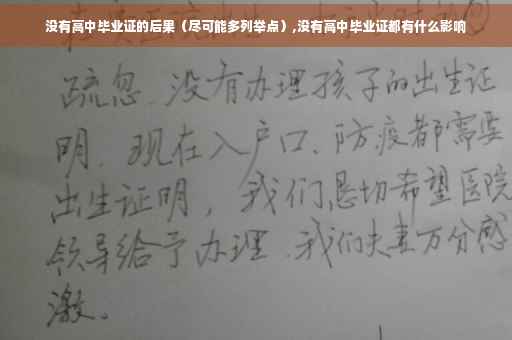 没有高中毕业证的后果（尽可能多列举点）,没有高中毕业证都有什么影响
疏忽、没有办理孩子的出生证
明、现在入户口、防疫都需要
出生证明，我们恳切希望医院
领导给予办理、我们夫妻万分感
激。